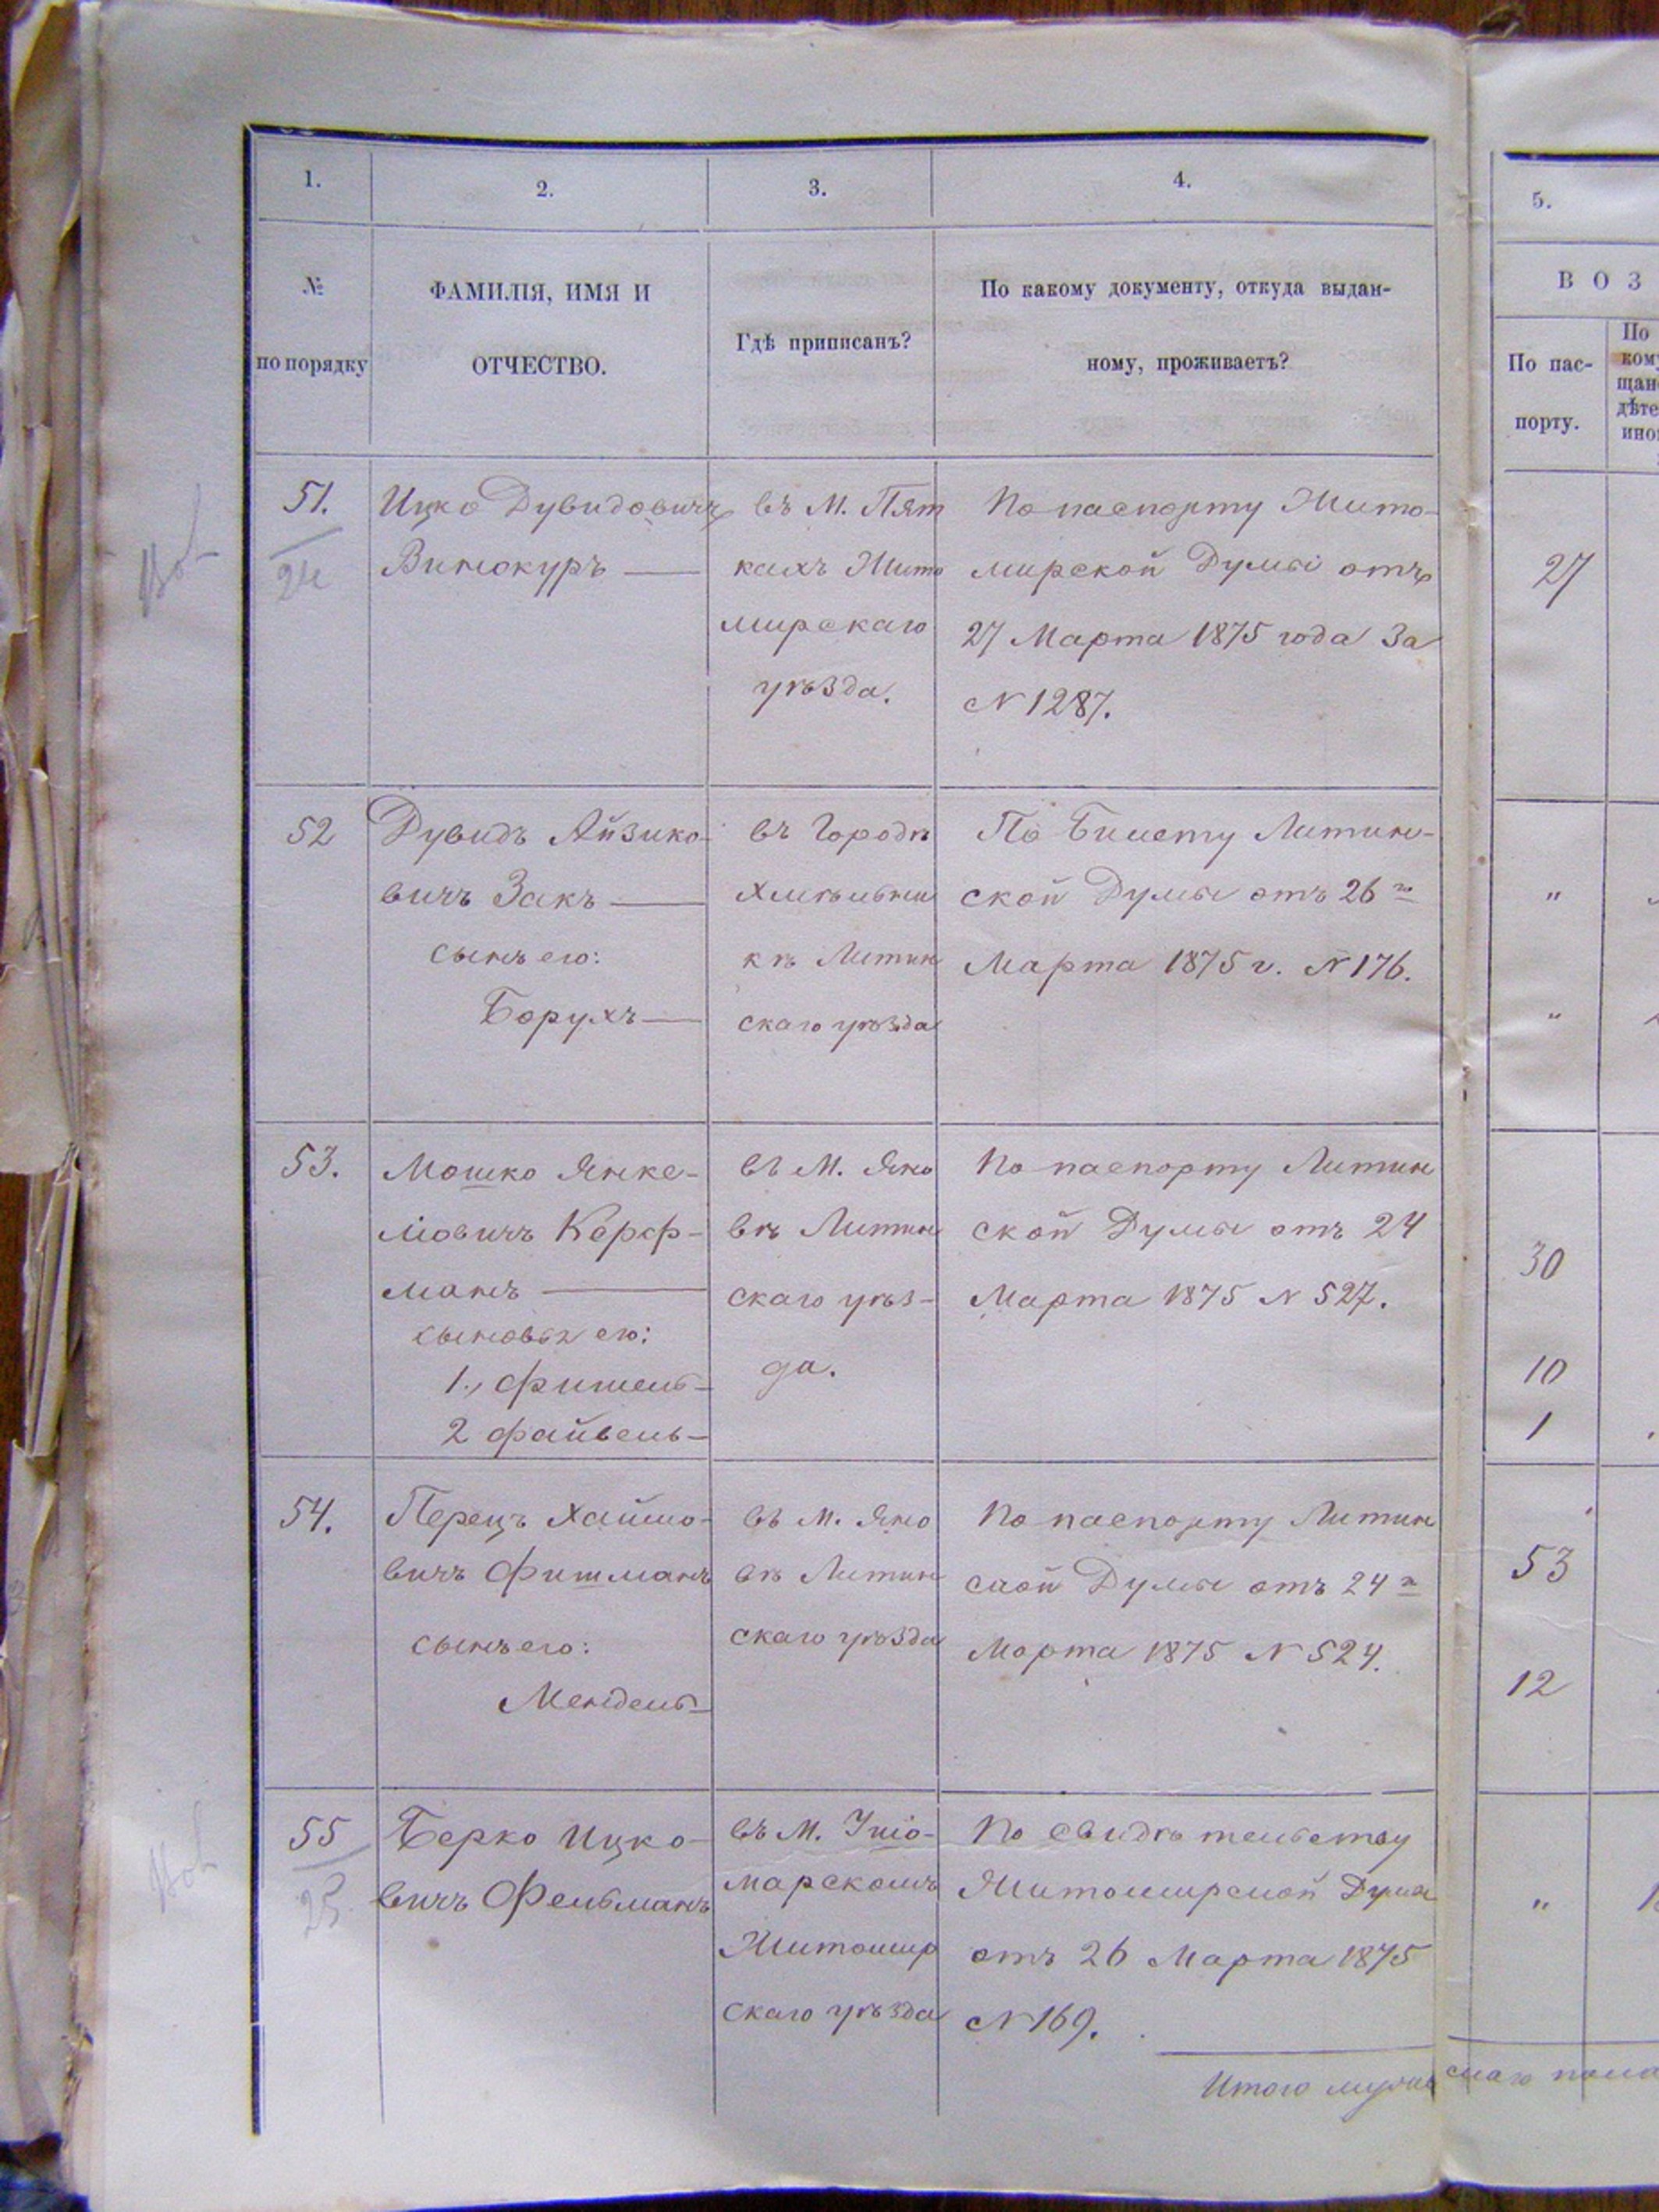 1.
2.
3.
4.
5.
№
по порядку
ФАМИЛІЯ, ИМЯ И
ОТЧЕСТВО.
Гдѣ приписанъ?
По какому документу, откуда выдан-
ному, проживаетъ?
ВОЗ
По пас-
порту.
По
кому
щан
дѣте
ино
51.
24
Ицко Дувидовичъ
Винокуръ —
въ М. Пят
кахъ Жито
мирскаго
уѣзда.
По паспорту Жито-
мирской Думы отъ
27 Марта 1875 года За
N 1287.
27
52
Дувидъ Айзико-
вичъ Закъ —
сынъ его:
Борухъ —
въ Городѣ
Хмѣльни
кѣ Литин
скаго уѣзда
По Билету Литин-
ской Думы отъ 26го
Марта 1875 г. N 176.
"
"
53.
Мошко Янке-
ліовичъ Керф-
манъ —
сыновья его:
1., Фишель —
2 Файвель —
въ М. Яно
вѣ Литин
скаго уѣз-
да.
По паспорту Литин
ской Думы отъ 24
Марта 1875 N 527.
30
10
1
54.
Перецъ Хаимо-
вичъ Фишманъ
сынъ его:
Мендель —
въ М. Яно
вѣ Литин
скаго уѣзда
По паспорту Литин
ской Думы отъ 24го
Марта 1875 N 524.
53
12
55
25
Берко Ицко-
вичъ Фельманъ
въ М.
марскомъ
Житомир
скаго уѣзда
По свидѣтельству
Житомирской Думы
отъ 26 Марта 1875
N 169.
"
Итого мужескаго пола